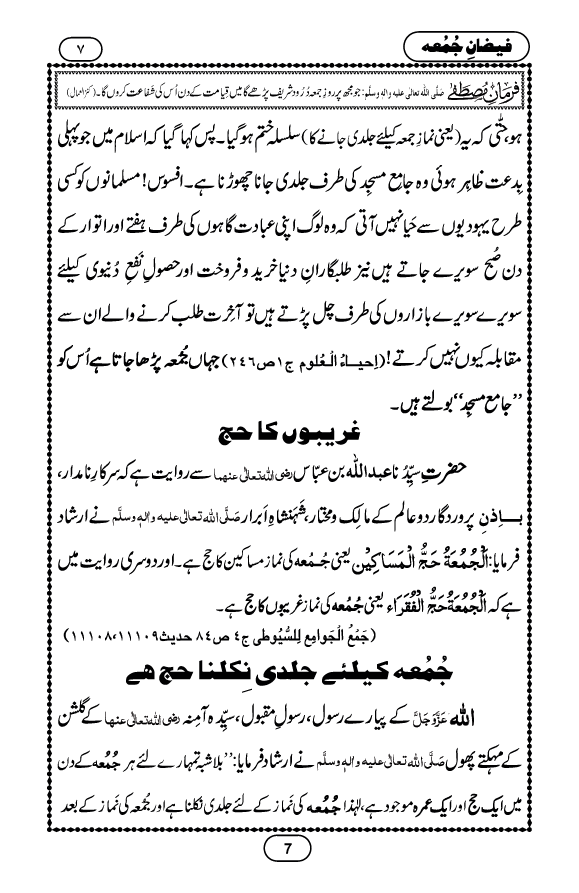 فیضانِ جُمُعہ
۷
فرمانِ مصطَفٰے صلَّی اللہ تعالٰی علیہ والہٖ وسلَّم: جو مجھ پر روزِ جمعہ دُرُود شریف پڑھے گا میں قیامت کے دن اُس کی شفاعت کروں گا۔ (کنزالعمال)
ہو، حتّٰی کہ یہ (یعنی نمازِ جمعہ کیلئے جلدی جانے کا) سلسلہ ختم ہو گیا۔ پس کہا گیا کہ اسلام میں جو پہلی
بِدعت ظاہر ہوئی وہ جامِع مسجِد کی طرف جلدی جانا چھوڑنا ہے۔ افسوس! مسلمانوں کو کسی
طرح یہودیوں سے حَیا نہیں آتی کہ وہ لوگ اپنی عبادت گاہوں کی طرف ہفتے اور اتوار کے
دن صُبح سویرے جاتے ہیں نیز طلبگارانِ دنیا خرید و فروخت اور حصولِ نَفعِ دُنیوی کیلئے
سویرے سویرے بازاروں کی طرف چل پڑتے ہیں تو آخِرت طلب کرنے والے ان سے
مقابلہ کیوں نہیں کرتے! (اِحیاءُ الْعُلوم ج۱ ص۲۴۶) جہاں جُمُعہ پڑھا جاتا ہے اُس کو
’’جامع مسجِد‘‘ بولتے ہیں۔
غریبوں کا حج
حضرتِ سیِّدُنا عبداللّٰہ بن عبّاس رضی اللہ تعالٰی عنہما سے روایت ہے کہ سرکارِ نامدار،
بِاِذنِ پروردگار دو عالم کے مالِک و مختار، شَہَنشاہِ اَبرار صلَّی اللہ تعالٰی علیہ والہٖ وسلَّم نے ارشاد
فرمایا: اَلْجُمُعَۃُ حَجُّ الْمَسَاکِیْن یعنی جُمُعہ کی نماز مساکین کا حج ہے۔ اور دوسری روایت میں
ہے کہ اَلْجُمُعَۃُ حَجُّ الْفُقَرَاء یعنی جُمُعہ کی نماز غریبوں کا حج ہے۔
(جَمْعُ الْجَوامِع لِلسُّیُوطی ج٤ ص٨٤ حدیث١١١٠٨،١١١٠٩)
جُمُعہ کیلئے جلدی نِکلنا حج ھے
اللّٰہ عَزَّوَجَلَّ کے پیارے رسول، رسولِ مقبول، سیِّدہ آمِنہ رضی اللہ تعالٰی عنہا کے گلشن
کے مہکتے پھول صلَّی اللہ تعالٰی علیہ والہٖ وسلَّم نے ارشاد فرمایا: ’’بلاشبہ تمہارے لئے ہر جُمُعہ کے دن
میں ایک حج اور ایک عمرہ موجود ہے، لہٰذا جُمُعہ کی نَماز کے لئے جلدی نکلنا حج ہے اور جُمُعہ کی نَماز کے بعد
7